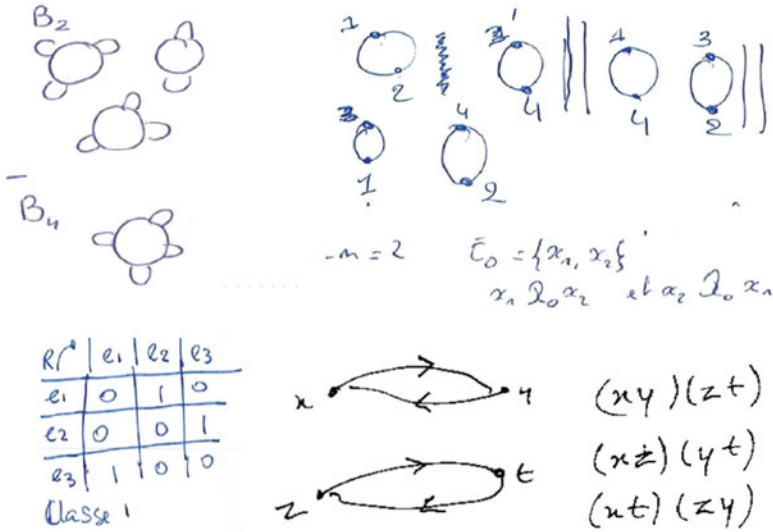 B₂
1
2
3
4
1
4
3
2
3
1
4
2
B₄
-n = 2 C₀ = {x₁, x₂}
x₁ R₀ x₂ et x₂ R₀ x₁
e1 e2 e3
e1 0 1 0
e2 0 0 1
e3 1 0 0
Classe 1
x y
z t
(xy)(zt)
(xz)(yt)
(xt)(zy)